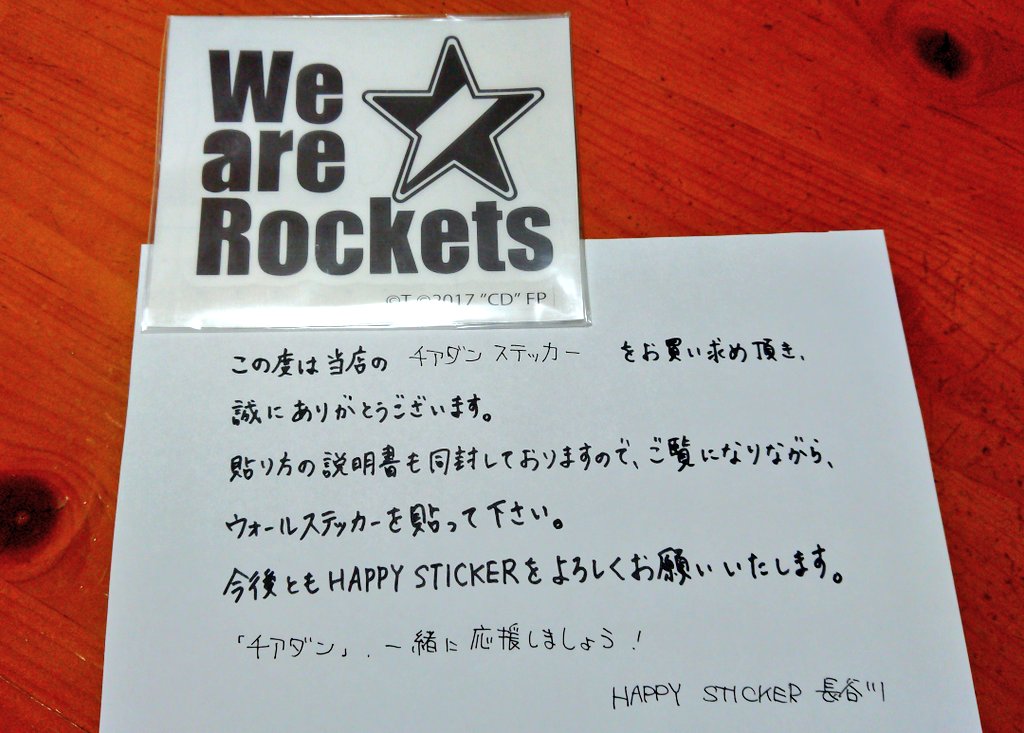 We
are
Rockets
©T ©2017 "CD" FP
この度は当店の チアダン ステッカー をお買い求め頂き、
誠にありがとうございます。
貼り方の説明書も同封しておりますので、ご覧になりながら、
ウォールステッカーを貼って下さい。
今後ともHAPPY STICKERをよろしくお願いいたします。
「チアダン」、一緒に応援しましょう!
HAPPY STICKER 長谷川